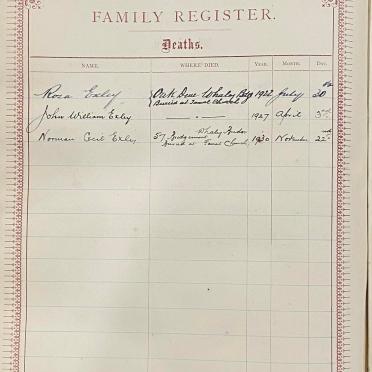 FAMILY REGISTER.
Deaths.
NAME. WHERE DIED. YEAR. MONTH. DAY.
Rosa Exley Oak Dene Whaley Bdg 1922 July 30
Buried at Taxal Church
John William Exley — " — 1927 April 3rd
Norman Cecil Exley 57 Whaley 1930 November 22nd
Buried at Taxal Church